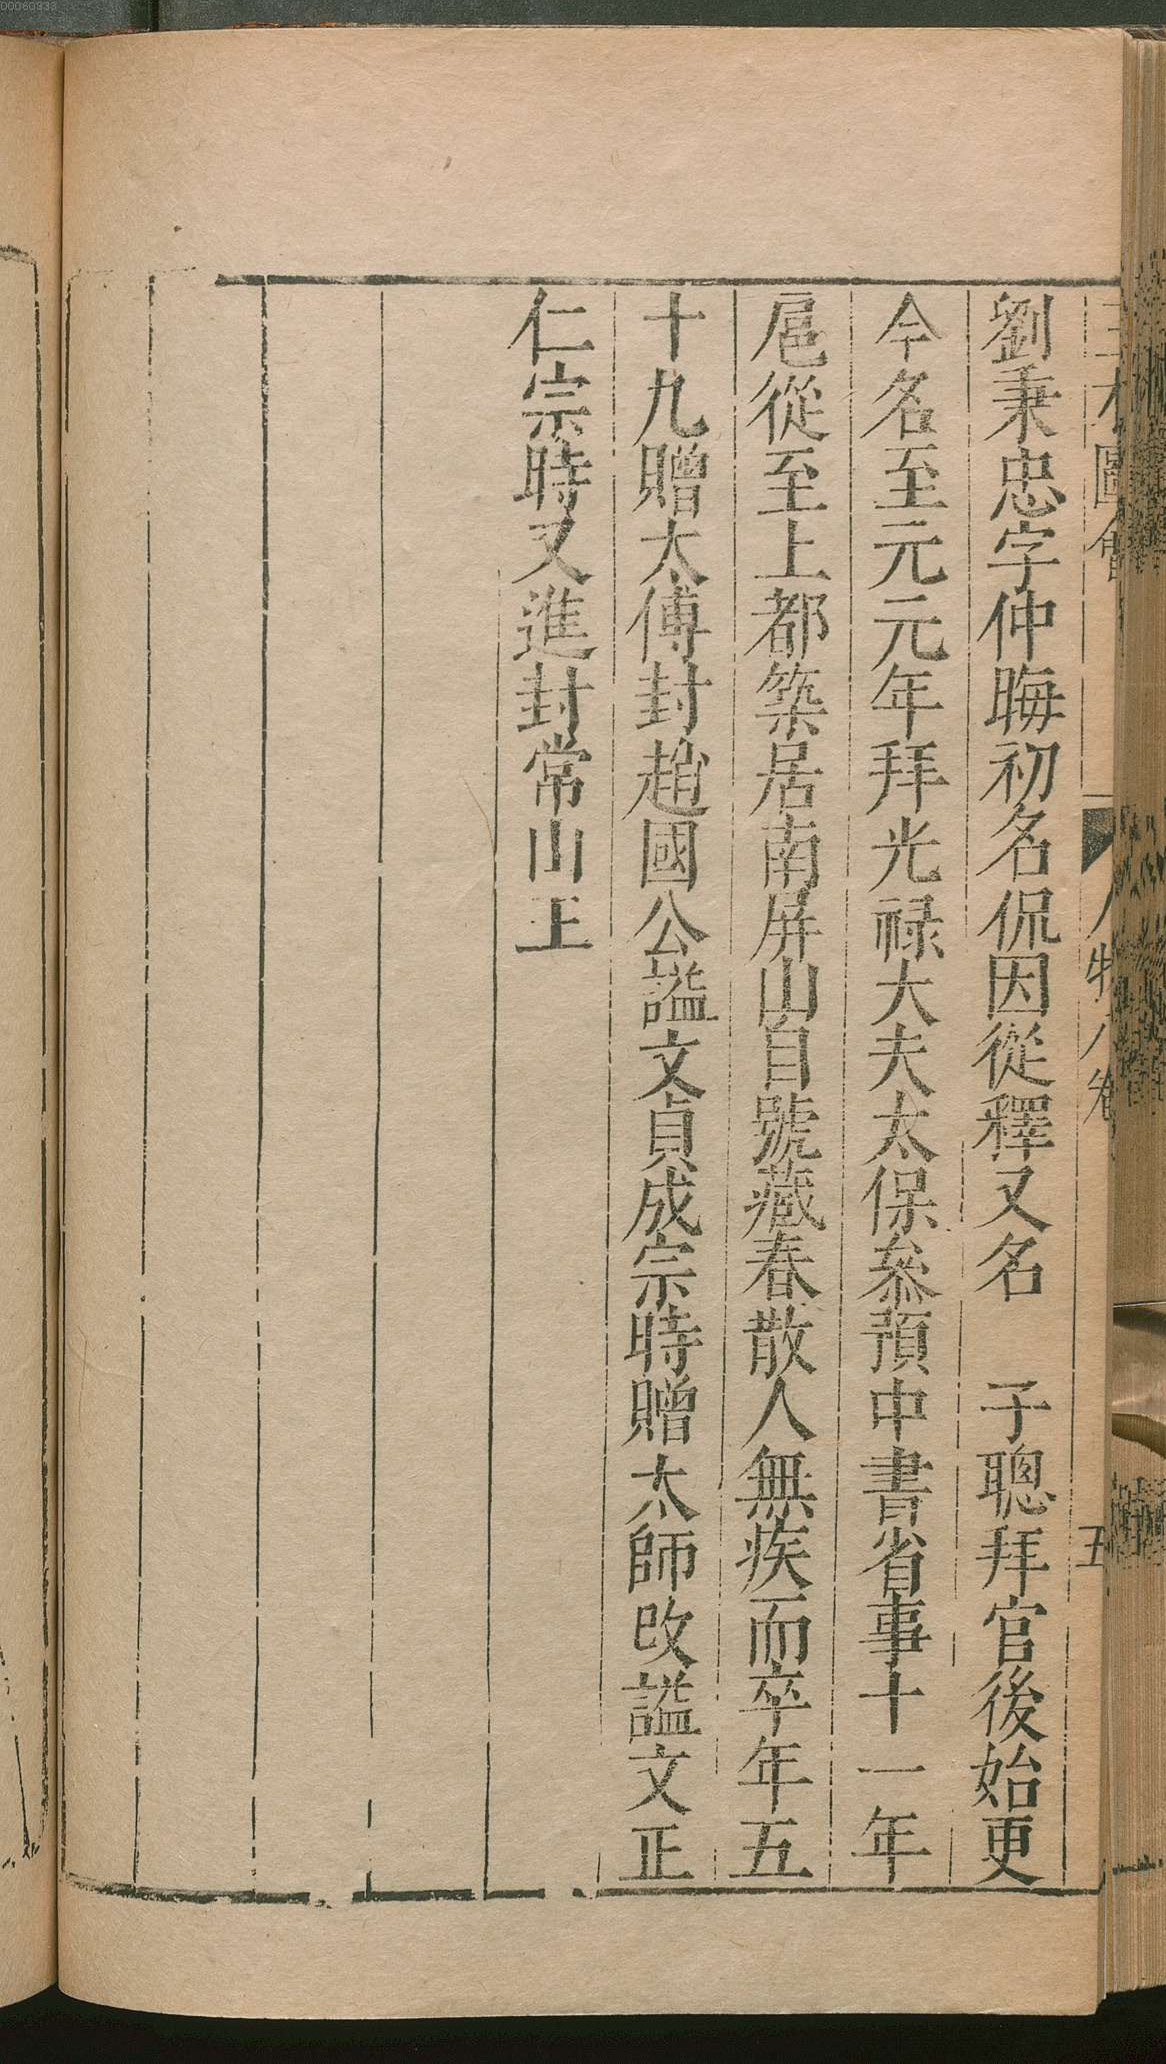 劉秉忠字仲晦初名侃因從釋又名　子聰拜官後始更
今名至元元年拜光祿大夫太保叅預中書省事十一年
扈從至上都築居南屏山自號藏春散人無疾而卒年五
十九贈太傅封趙國公謚文貞成宗時贈太師改謚文正
仁宗時又進封常山王
00060333